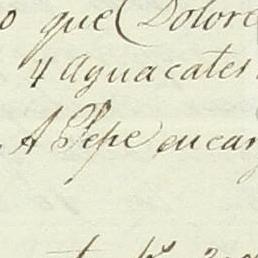 o que Dolore
4 aguacates
A Pepe encar